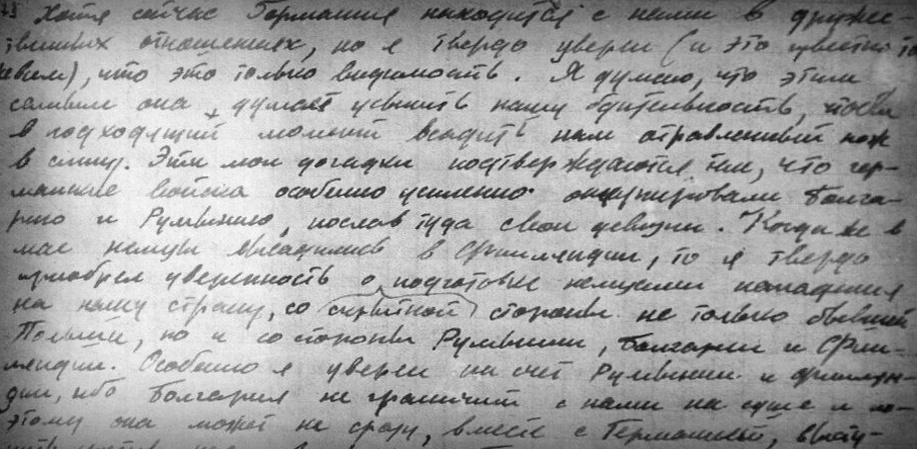 Хотя сейчас Германия находится с нами в друже-
ственных отношениях, но я твердо уверен (и это известно
всем), что это только видимость. Я думаю, что этим
самым она думает усыпить нашу бдительность, чтобы
в подходящий момент всадить нам отравленный нож
в спину. Эти мои догадки подтверждаются тем, что гер-
манские войска особенно усиленно оккупировали Болга-
рию и Румынию, послав туда свои дивизии. Когда же в
мае немцы высадились в Финляндии, то я твердо
приобрел уверенность о подготовке немцами нападения
на нашу страну, со скрытной стороны не только бывшей
Польши, но и со стороны Румынии, Болгарии и Фин-
ляндии. Особенно я уверен на счет Румынии и Финлян-
дии, ибо Болгария не граничит с нами на суше и по-
этому она может не сразу, вместе с Германией, высту-